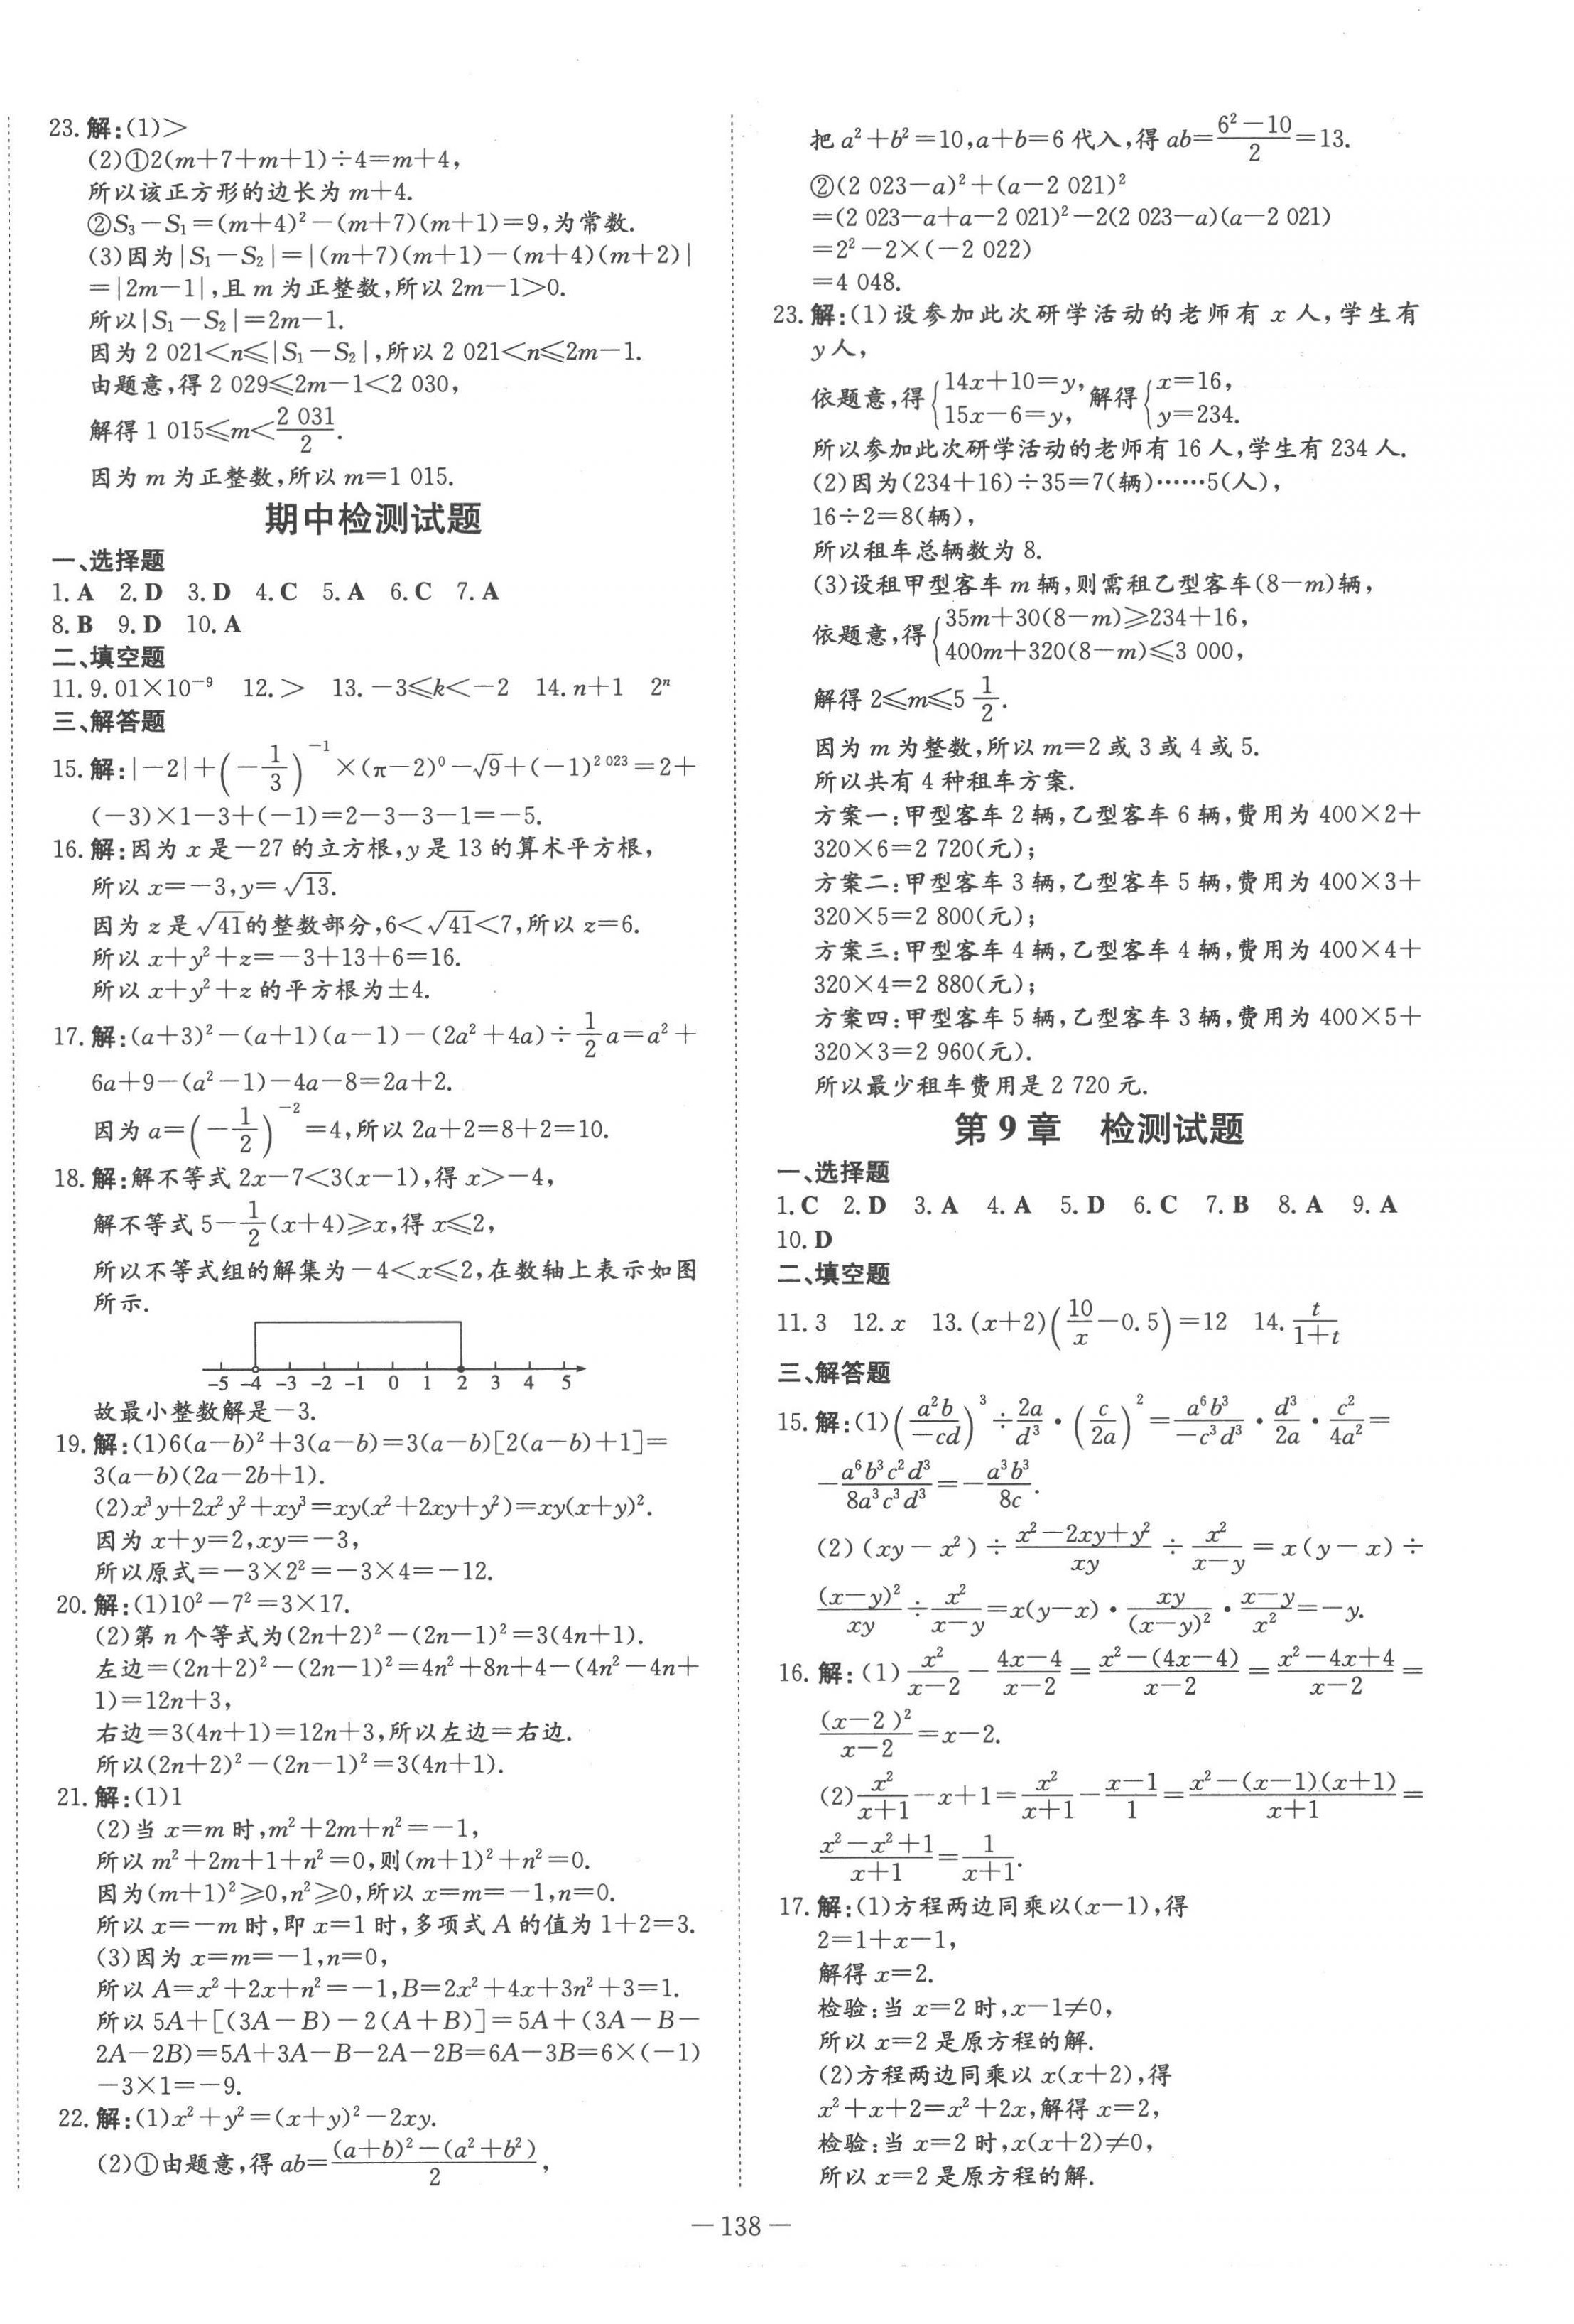 23.解:(1)>
(2)①2(m+7+m+1)÷4=m+4,
所以该正方形的边长为 m+4.
②S₃-S₁=(m+4)²-(m+7)(m+1)=9,为常数.
(3)因为|S₁-S₂|=|(m+7)(m+1)-(m+4)(m+2)|
=|2m-1|,且 m 为正整数,所以 2m-1>0.
所以|S₁-S₂|=2m-1.
因为 2 021<n≤|S₁-S₂|,所以 2 021<n≤2m-1.
由题意,得 2 029≤2m-1<2 030,
解得 1 015≤m<2 031/2.
因为 m 为正整数,所以 m=1 015.
期中检测试题
一、选择题
1.A 2.D 3.D 4.C 5.A 6.C 7.A
8.B 9.D 10.A
二、填空题
11.9.01×10⁻⁹ 12.> 13.-3≤k<-2 14.n+1 2ⁿ
三、解答题
15.解:|-2|+(-1/3)⁻¹×(π-2)⁰-√9+(-1)²⁰²³=2+
(-3)×1-3+(-1)=2-3-3-1=-5.
16.解:因为 x 是-27 的立方根,y 是 13 的算术平方根,
所以 x=-3,y=√13.
因为 z 是√41的整数部分,6<√41<7,所以 z=6.
所以 x+y²+z=-3+13+6=16.
所以 x+y²+z 的平方根为±4.
17.解:(a+3)²-(a+1)(a-1)-(2a²+4a)÷1/2a=a²+
6a+9-(a²-1)-4a-8=2a+2.
因为 a=(-1/2)⁻²=4,所以 2a+2=8+2=10.
18.解:解不等式 2x-7<3(x-1),得 x>-4,
解不等式 5-1/2(x+4)≥x,得 x≤2,
所以不等式组的解集为-4<x≤2,在数轴上表示如图
所示.
-5 -4 -3 -2 -1 0 1 2 3 4 5
故最小整数解是-3.
19.解:(1)6(a-b)²+3(a-b)=3(a-b)[2(a-b)+1]=
3(a-b)(2a-2b+1).
(2)x³y+2x²y²+xy³=xy(x²+2xy+y²)=xy(x+y)².
因为 x+y=2,xy=-3,
所以原式=-3×2²=-3×4=-12.
20.解:(1)10²-7²=3×17.
(2)第 n 个等式为(2n+2)²-(2n-1)²=3(4n+1).
左边=(2n+2)²-(2n-1)²=4n²+8n+4-(4n²-4n+
1)=12n+3,
右边=3(4n+1)=12n+3,所以左边=右边.
所以(2n+2)²-(2n-1)²=3(4n+1).
21.解:(1)1
(2)当 x=m 时,m²+2m+n²=-1,
所以 m²+2m+1+n²=0,则(m+1)²+n²=0.
因为(m+1)²≥0,n²≥0,所以 x=m=-1,n=0.
所以 x=-m 时,即 x=1 时,多项式 A 的值为 1+2=3.
(3)因为 x=m=-1,n=0,
所以 A=x²+2x+n²=-1,B=2x²+4x+3n²+3=1.
所以 5A+[(3A-B)-2(A+B)]=5A+(3A-B-
2A-2B)=5A+3A-B-2A-2B=6A-3B=6×(-1)
-3×1=-9.
22.解:(1)x²+y²=(x+y)²-2xy.
(2)①由题意,得 ab=((a+b)²-(a²+b²))/2,
把 a²+b²=10,a+b=6 代入,得 ab=(6²-10)/2=13.
②(2 023-a)²+(a-2 021)²
=(2 023-a+a-2 021)²-2(2 023-a)(a-2 021)
=2²-2×(-2 022)
=4 048.
23.解:(1)设参加此次研学活动的老师有 x 人,学生有
y 人,
依题意,得{14x+10=y, 15x-6=y, 解得{x=16, y=234.
所以参加此次研学活动的老师有 16 人,学生有 234 人.
(2)因为(234+16)÷35=7(辆)……5(人),
16÷2=8(辆),
所以租车总辆数为 8.
(3)设租甲型客车 m 辆,则需租乙型客车(8-m)辆,
依题意,得{35m+30(8-m)≥234+16, 400m+320(8-m)≤3 000,
解得 2≤m≤5 1/2.
因为 m 为整数,所以 m=2 或 3 或 4 或 5.
所以共有 4 种租车方案.
方案一:甲型客车 2 辆,乙型客车 6 辆,费用为 400×2+
320×6=2 720(元);
方案二:甲型客车 3 辆,乙型客车 5 辆,费用为 400×3+
320×5=2 800(元);
方案三:甲型客车 4 辆,乙型客车 4 辆,费用为 400×4+
320×4=2 880(元);
方案四:甲型客车 5 辆,乙型客车 3 辆,费用为 400×5+
320×3=2 960(元).
所以最少租车费用是 2 720 元.
第 9 章 检测试题
一、选择题
1.C 2.D 3.A 4.A 5.D 6.C 7.B 8.A 9.A
10.D
二、填空题
11.3 12.x 13.(x+2)(10/x-0.5)=12 14.t/(1+t)
三、解答题
15.解:(1)(a²b/(-cd))³÷2a/d³·(c/2a)²=a⁶b³/(-c³d³)·d³/2a·c²/4a²=
-a⁶b³c²d³/8a³c³d³=-a³b³/8c.
(2)(xy-x²)÷(x²-2xy+y²)/xy÷x²/(x-y)=x(y-x)÷
(x-y)²/xy÷x²/(x-y)=x(y-x)·xy/(x-y)²·(x-y)/x²=-y.
16.解:(1)x²/(x-2)-(4x-4)/(x-2)=(x²-(4x-4))/(x-2)=(x²-4x+4)/(x-2)=
(x-2)²/(x-2)=x-2.
(2)x²/(x+1)-x+1=x²/(x+1)-(x-1)/1=(x²-(x-1)(x+1))/(x+1)=
(x²-x²+1)/(x+1)=1/(x+1).
17.解:(1)方程两边同乘以(x-1),得
2=1+x-1,
解得 x=2.
检验:当 x=2 时,x-1≠0,
所以 x=2 是原方程的解.
(2)方程两边同乘以 x(x+2),得
x²+x+2=x²+2x,解得 x=2,
检验:当 x=2 时,x(x+2)≠0,
所以 x=2 是原方程的解.
—138—